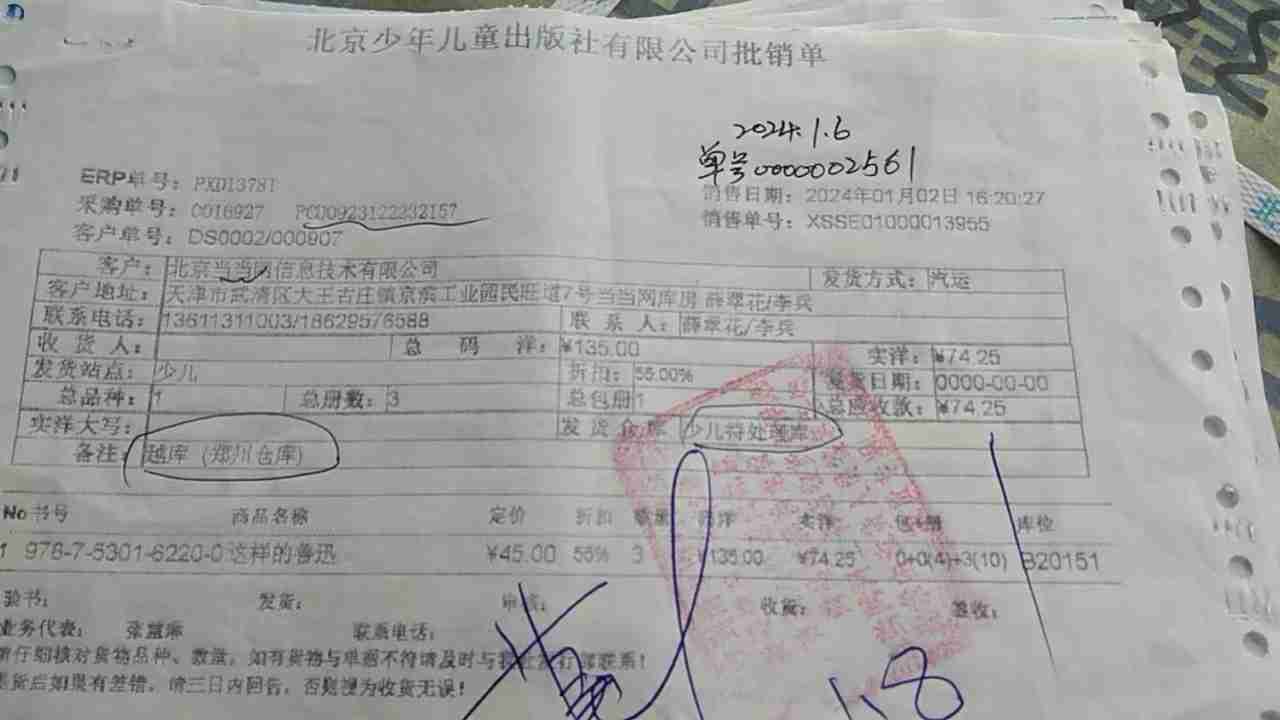 北京少年儿童出版社有限公司批销单
2024.1.6
单号0000002561
ERP单号：PXD13781
销售日期：2024年01月02日 16:20:27
采购单号：C016927 PCD0923122232157
销售单号：XSSE01000013955
客户单号：DS0002/000907
客户：北京当当网信息技术有限公司 发货方式：汽运
客户地址：天津市武清区大王古庄镇京滨工业园民旺道7号当当网库房 薛翠花/李兵
联系电话：13611311003/18629576588 联系人：薛翠花/李兵
收货人： 总码洋：¥135.00 实洋：¥74.25
发货站点：少儿 折扣：55.00% 发货日期：0000-00-00
总品种：1 总册数：3 总包册1 总应收款：¥74.25
实洋大写： 发货仓库 少儿待处理库
备注：越库（郑州仓库）
No 书号 商品名称 定价 折扣 数量 码洋 实洋 包+册 库位
1 978-7-5301-6220-0 这样的鲁迅 ¥45.00 55% 3 ¥135.00 ¥74.25 0+0(4)+3(10) B20151
验书： 发货： 审核： 收货： 签收：
业务代表： 联系电话：
请仔细核对货物品种、数量，如有货物与单据不符请及时与我社发行部联系！
发货后如果有差错，请三日内回告，否则视为收货无误！
1.8